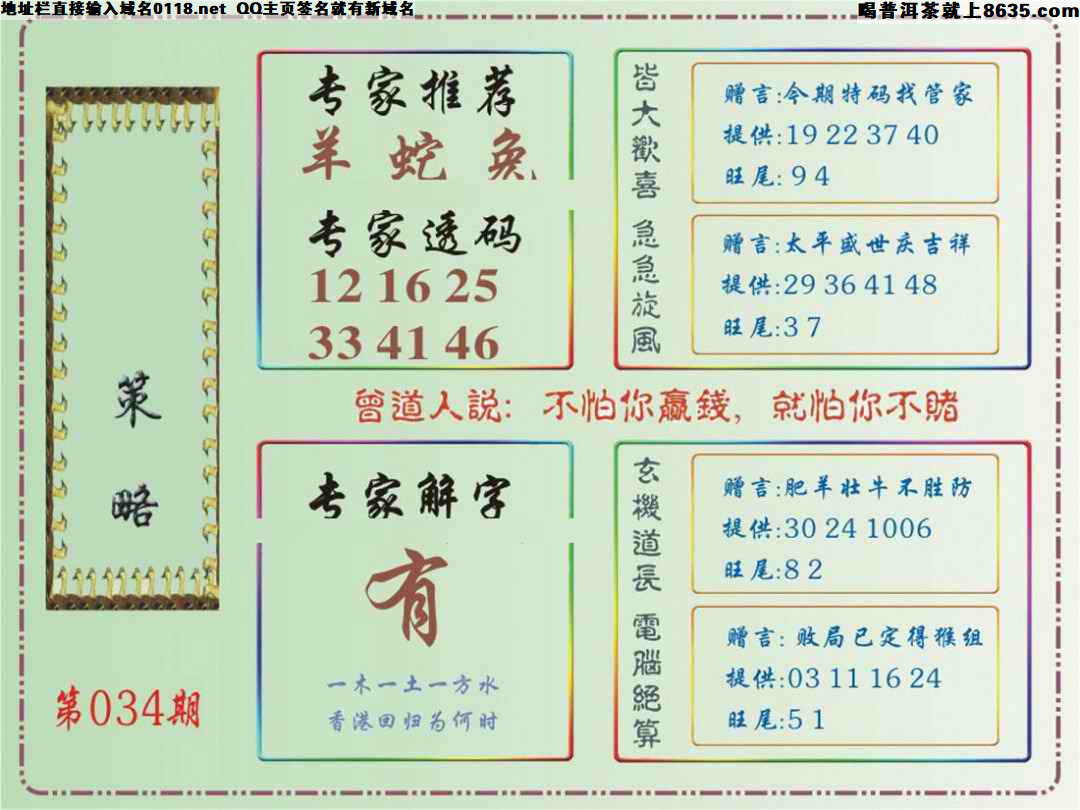 地址栏直接输入域名0118.net QQ主页签名就有新域名
喝普洱茶就上8635.com
策
略
第034期
专家推荐
羊 蛇 兔
专家透码
12 16 25
33 41 46
皆大歡喜
赠言:今期特码找管家
提供:19 22 37 40
旺尾: 9 4
急急旋風
赠言:太平盛世庆吉祥
提供:29 36 41 48
旺尾:3 7
曾道人説: 不怕你贏錢, 就怕你不賭
专家解字
有
一木一土一方水
香港回归为何时
玄機道長
赠言:肥羊壮牛不胜防
提供:30 24 1006
旺尾:8 2
電腦絕算
赠言: 败局已定得猴组
提供:03 11 16 24
旺尾:5 1